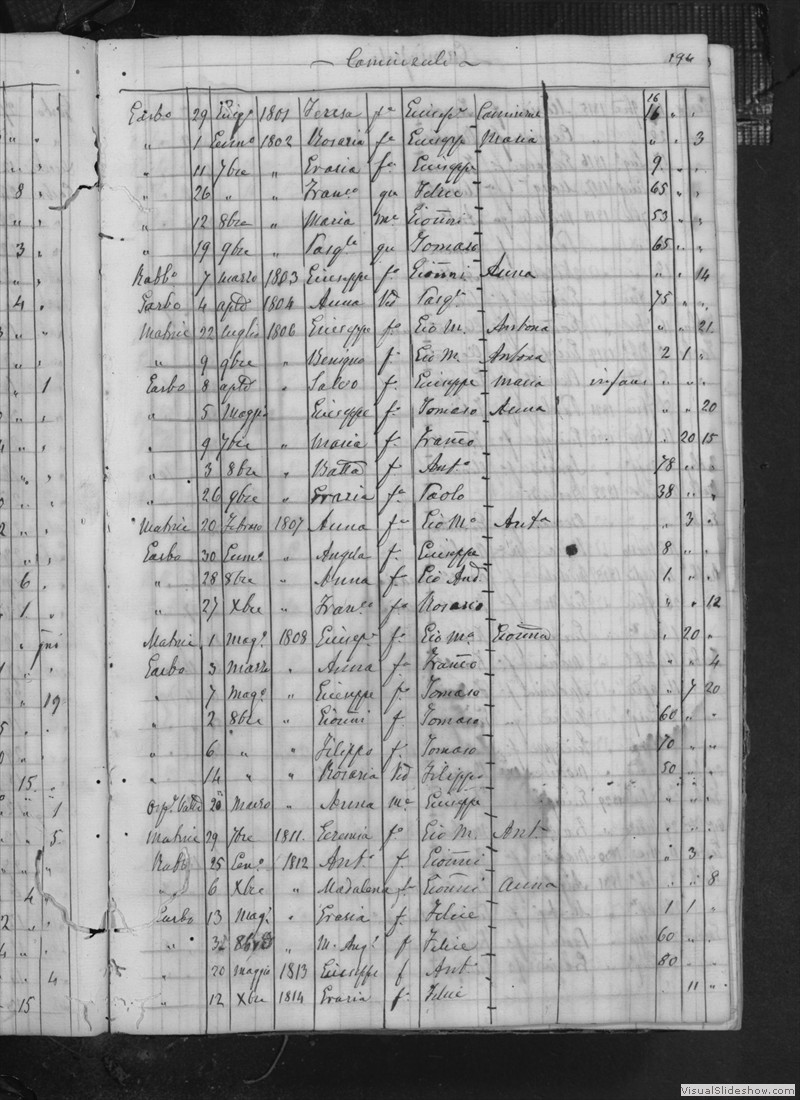 194
16
29 1801 Teresa fa 16 " "
" 1 1802 Rosaria fa Giusepp Maria " " 3
" 11 7bre " Grazia fa Giuseppe 9 " "
" 26 " " Franca qu Felice 65 " "
" 12 8bre " Maria ma Gioñni 53 " "
" 19 9bre " Pasqle qu Tomaso 65 " "
Rabbo 7 marzo 1803 Giuseppe fo Gioñni Anna " " 14
Garbo 4 aple 1804 Anna Vid Pasqe 75 " "
Matrice 22 luglio 1806 Giuseppe fo Gio M. Antona " " 21
" 9 9bre " Benigno f Gio M. Antona 2 1 "
Garbo 8 aple " Salvo f Giuseppe Maria " " "
" 5 Maggio Giuseppe fo Tomaso Anna " " 20
" 9 7bre " Maria fa Franco " 20 15
" 3 8bre " f Anto 78 " "
" 26 9bre " Grazia fa Paolo 38 " "
Matrice 20 1807 Anna fa Gio Ma Anta " 3 "
Garbo 30 " Angela f Giuseppe 8 " "
" 28 8bre " Anna fa Gio And 1 " "
" 27 Xbre " Franco fo Rosario " " 12
Matrice 1 mago 1808 Giuspe fo Gio Ma Gioñna " 20 "
Garbo 3 Marzo " Anna fa Franco " " 4
" 7 Mago " Giuseppe fo Tomaso " 7 20
" 2 8bre " Gioñni f Tomaso 60 " "
" 6 " " Filippo f Tomaso 70 " "
" 14 " " Rosaria Vid Filippo 50 " "
20 Marzo " Anna ma Giuseppe " " "
Matrice 29 7bre 1811. fa Gio M. Anta " " "
Rabb 25 Geno 1812 Anto f Gioñni " 3 "
" 6 Xbre " Madalena fa Gioñni Anna " " 8
Garbo 13 mago " Grazia f Felice 1 1 "
" " M. Anga f Felice 60 " "
" 20 maggio 1813 Giuseppe f Anto 80 " "
" 12 Xbre 1814 Grazia fa Felice " 11 "
VisualSlideshow.com